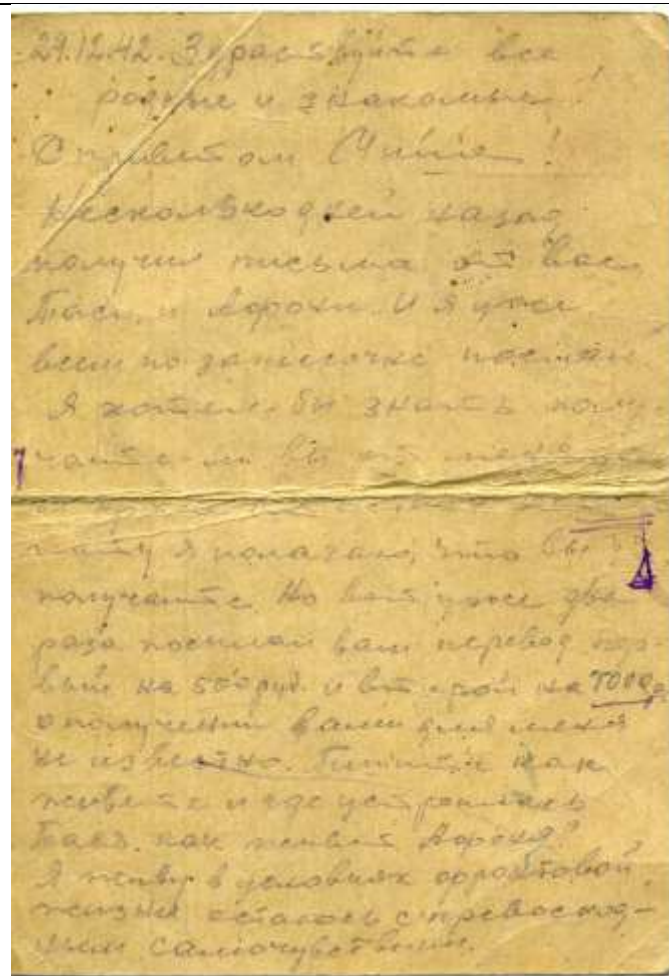 29.12.42. Здраствуйте все
родные и знакомые!
С приветом Миша!
Несколько дней назад
получил письма от вас
Таси, и Афрохи. И я уже
всем по записочке послал
Я хотел бы знать полу-
чаите ли вы от меня
я полагаю, что вы
получаите. Но вот, уже два
раза посылал вам перевод пер-
вый на 500 руб. и второй на 700 р
о получении вами для меня
не известно. Пишите как
живете и где устроилась
как живет Афрохя?
Я живу в условиях фронтовой
жизни остаюсь с превосход-
ным самочувствием.